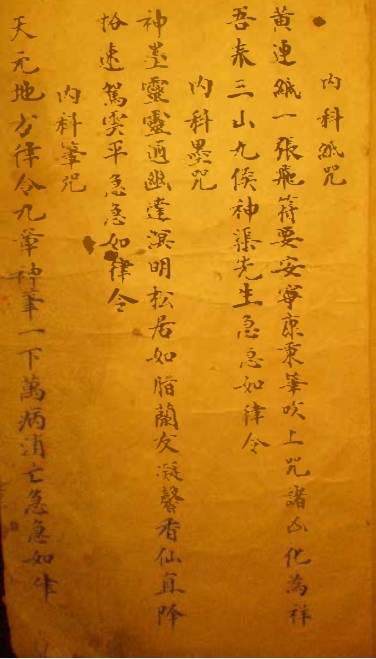 內科紙咒
黃連紙一張飛符要安寧京秉筆吹上咒諸凶化為祥
吾奉三山九侯神渠先生急急如律令
內科墨咒
神墨靈靈通幽達溟明松居如脂蘭友凝馨香仙直降
速駕雲平急急如律令
內科筆咒
天元地方律令九章神筆一下萬病消亡急急如律